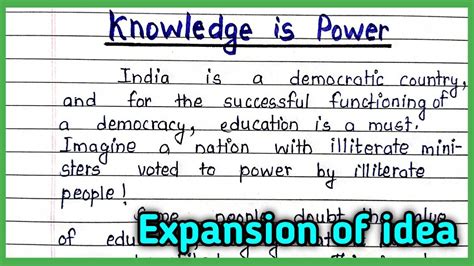 Knowledge is Power
India is a democratic country,
and for the successful functioning of
a democracy, education is a must.
Imagine a nation with illiterate mini-
sters voted to power by illiterate
people!
Some people doubt the value
of edu
Expansion of idea